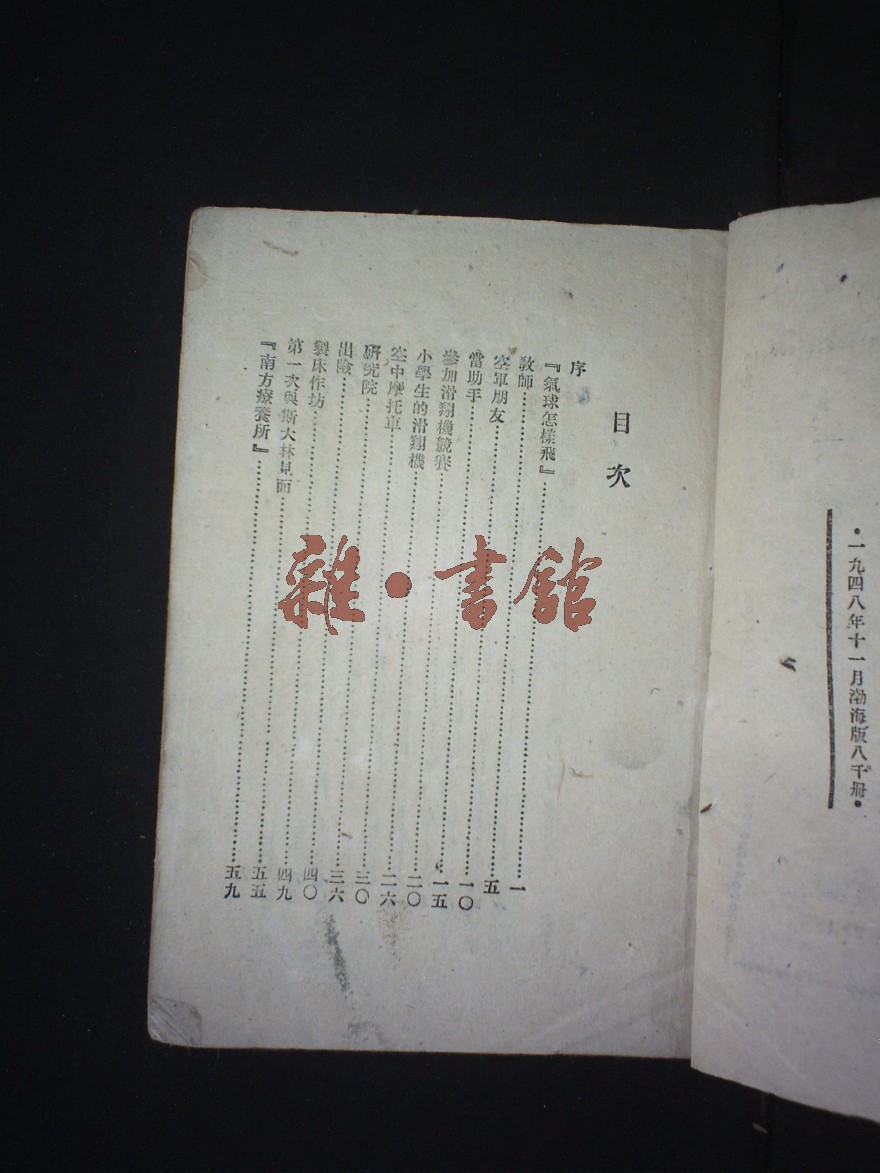 •一九四八年十一月渤海版八千冊•
目次
序
『氣球怎樣飛』……一
教師……五
空軍朋友……一〇
當助手……一五
參加滑翔機競賽……二〇
小學生的滑翔機……二六
空中摩托車……三〇
研究院……三六
出險……四〇
製床作坊……四九
第一次與斯大林見面……五五
『南方療養所』……五九
雜•書館